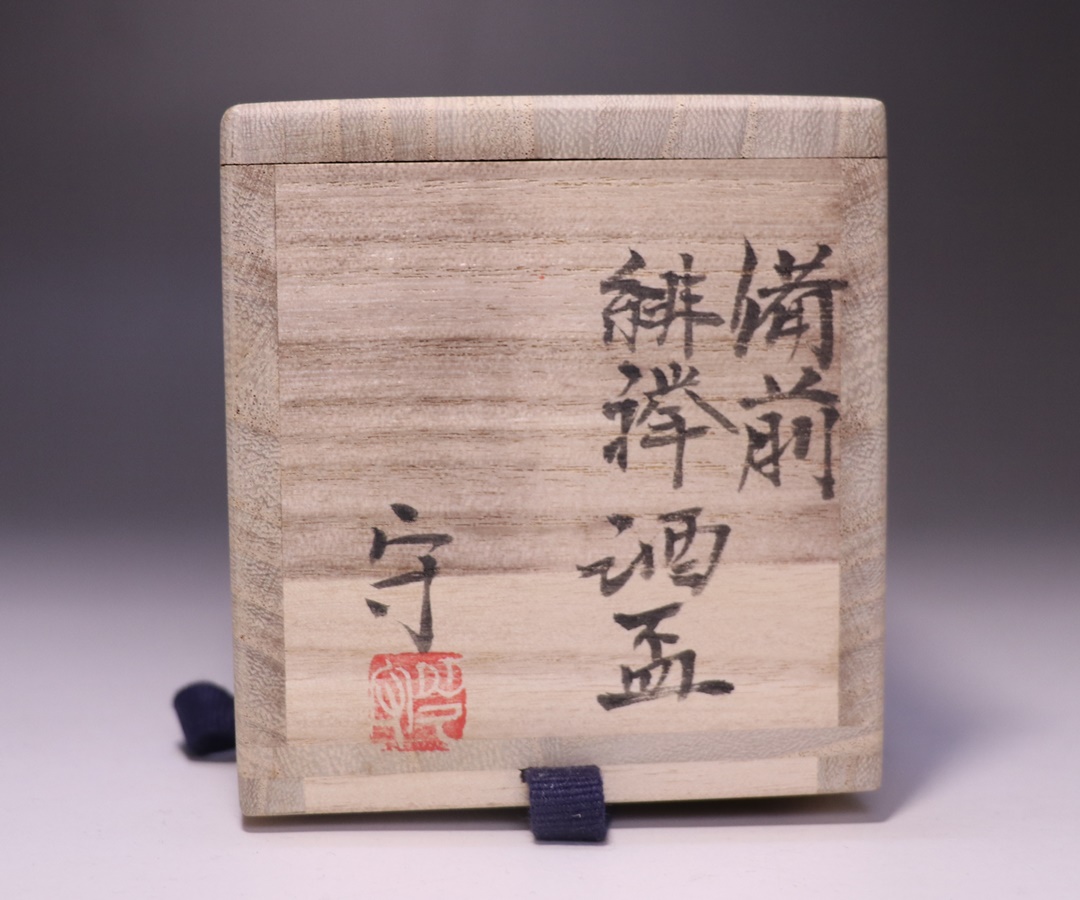 備前
緋襷 酒盃
守